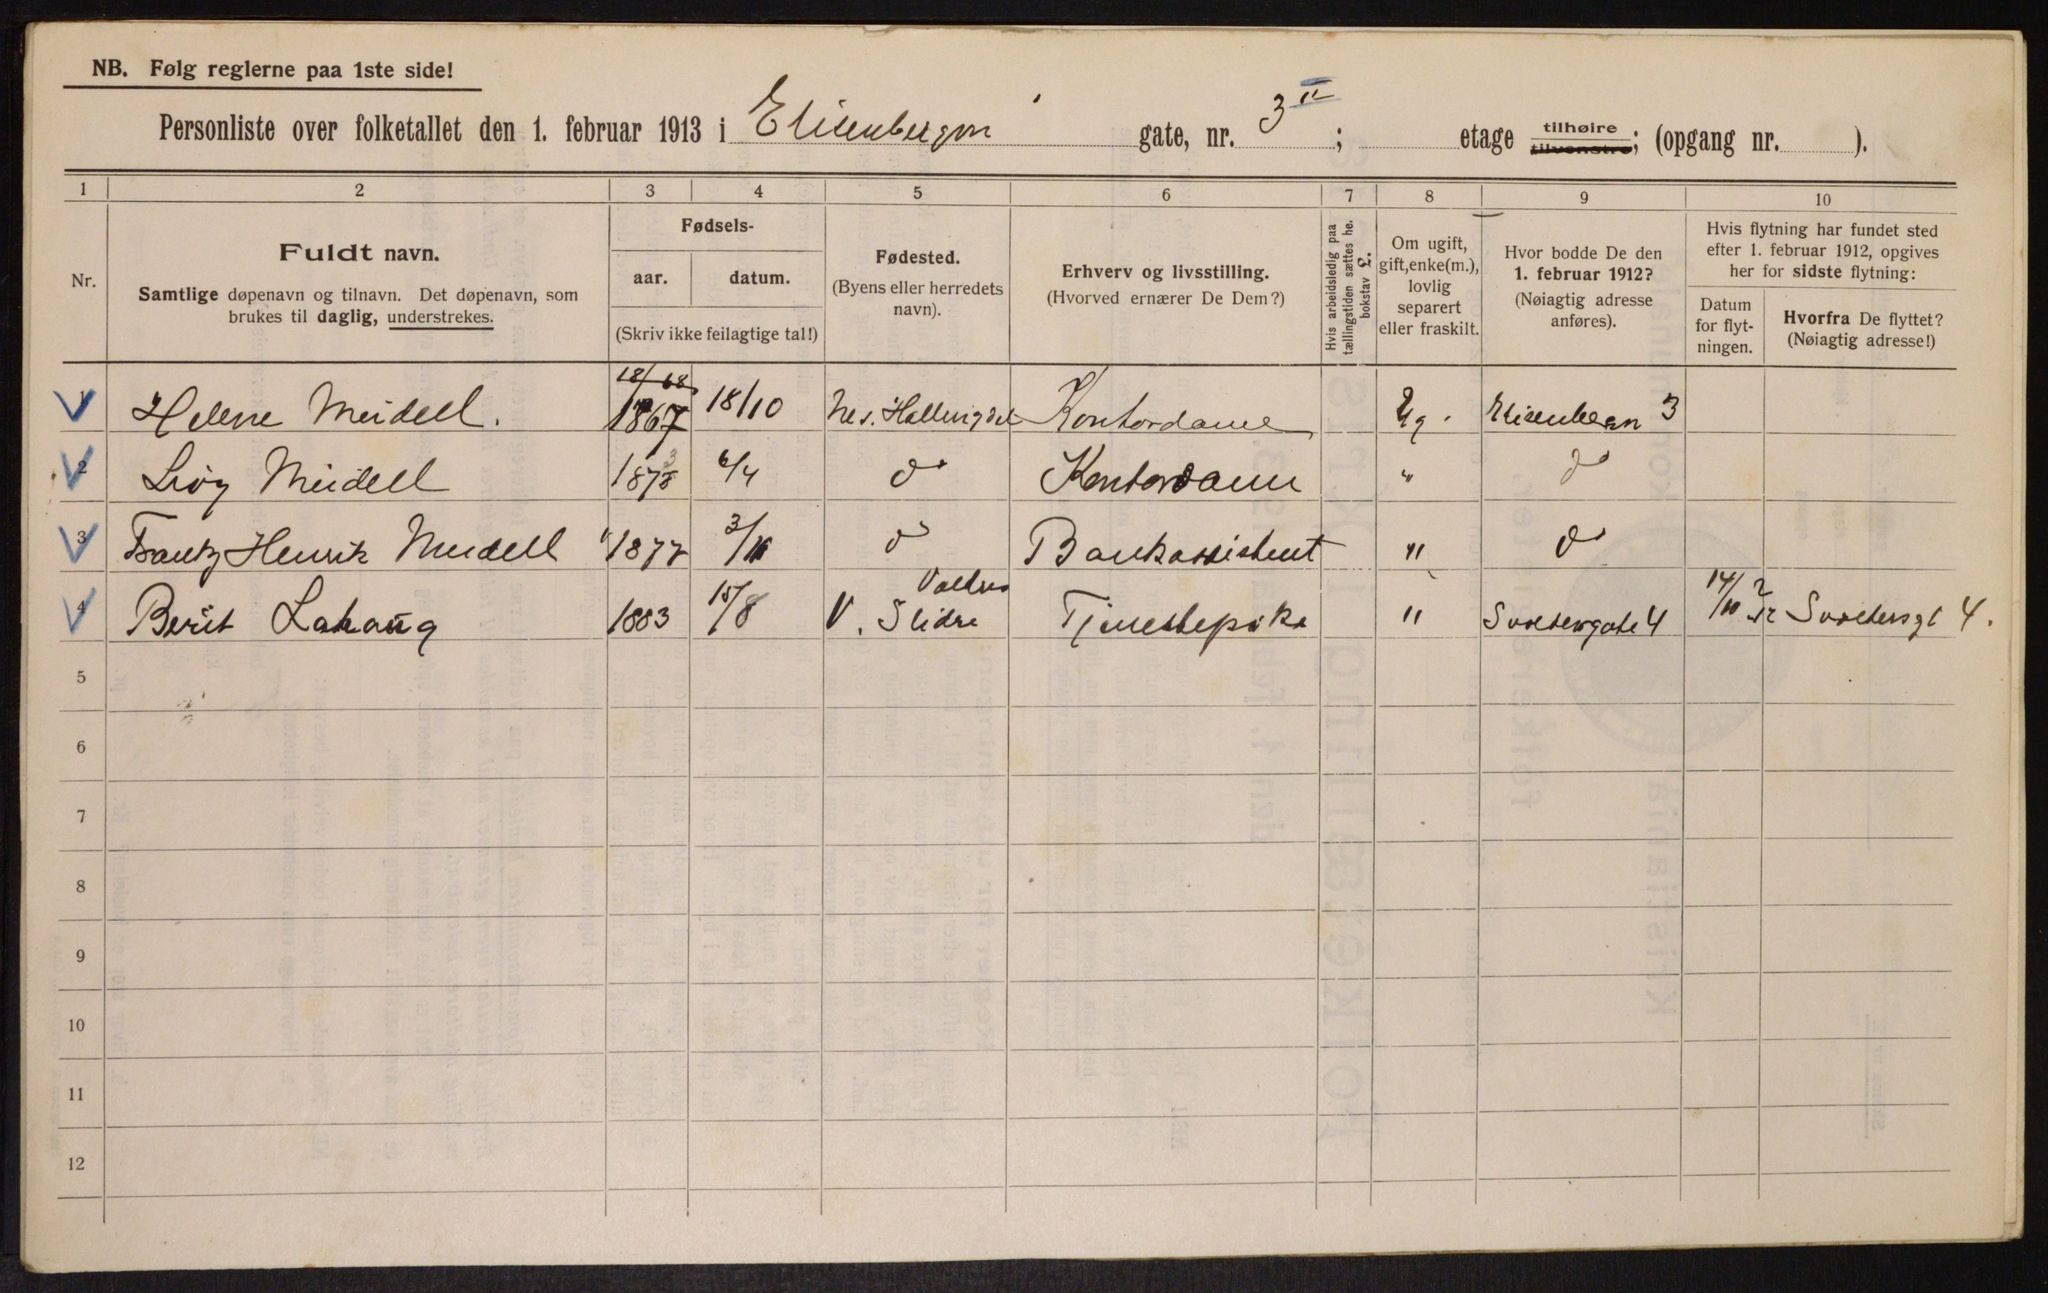 NB. Følg reglerne paa 1ste side!
Personliste over folketallet den 1. februar 1913 i Elisenbergvn gate, nr. 3 II ; etage tilhøire tilvenstre; (opgang nr. ).
1 2 3 4 5 6 7 8 9 10
Nr.
Fuldt navn.
Samtlige døpenavn og tilnavn. Det døpenavn, som
brukes til daglig, understrekes.
Fødsels-
aar. datum.
(Skriv ikke feilagtige tal!)
Fødested.
(Byens eller herredets
navn).
Erhverv og livsstilling.
(Hvorved ernærer De Dem?)
Hvis arbeidsledig paa
tællingstiden sættes he.
bokstav L.
Om ugift,
gift, enke(m.),
lovlig
separert
eller fraskilt.
Hvor bodde De den
1. februar 1912?
(Nøiagtig adresse
anføres).
Hvis flytning har fundet sted
efter 1. februar 1912, opgives
her for sidste flytning:
Datum
for flyt-
ningen.
Hvorfra De flyttet?
(Nøiagtig adresse!)
1 Helene Meidell. 18/68 1867 18/10 Nes. Hallingdal Kontordame Ug. Elisenbergvn 3
2 Meidell 1873 6/4 do Kontordame " do
3 Frantz Henrik Meidell 1877 3/11 do Bankassistent " do
4 Berit 1883 15/8 V. Slidre Valdres Tjenestepike " Sorternsgate 4 14/10 12 4.
5
6
7
8
9
10
11
12